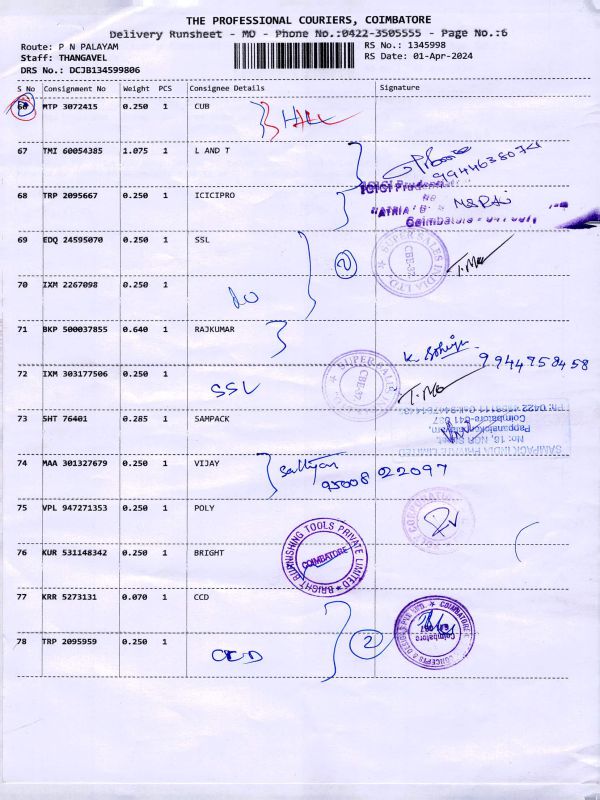 THE PROFESSIONAL COURIERS, COIMBATORE
Delivery Runsheet - MO - Phone No.:0422-3505555 - Page No.:6
Route: P N PALAYAM
RS No.: 1345998
Staff: THANGAVEL
RS Date: 01-Apr-2024
DRS No.: DCJB134599806
S No Consignment No Weight PCS Consignee Details Signature
MTP 3072415 0.250 1 CUB
67 TMI 60054385 1.075 1 L AND T
9944638074
68 TRP 2095667 0.250 1 ICICIPRO
ICICI Prudential
"ATRIA" B
Coimbatore
69 EDQ 24595070 0.250 1 SSL
SUPER SALES INDIA LTD
CBE-37
2
70 IXM 2267098 0.250 1
DO
71 BKP 500037855 0.640 1 RAJKUMAR
9944758458
72 IXM 303177506 0.250 1
SSL
SUPER SALES
CBE-37
73 SHT 76401 0.285 1 SAMPACK
SAMPACK INDIA PRIVATE LIMITED
No: 10, NGR Street,
Coimbatore-641 037
74 MAA 301327679 0.250 1 VIJAY
95008 22097
75 VPL 947271353 0.250 1 POLY
76 KUR 531148342 0.250 1 BRIGHT
BRIGHT BURNISHING TOOLS PRIVATE LIMITED
COIMBATORE
77 KRR 5273131 0.070 1 CCD
78 TRP 2095959 0.250 1
CCD
2
CONCEPTS & DESIGNS PVT LTD. COIMBATORE
Coimbatore